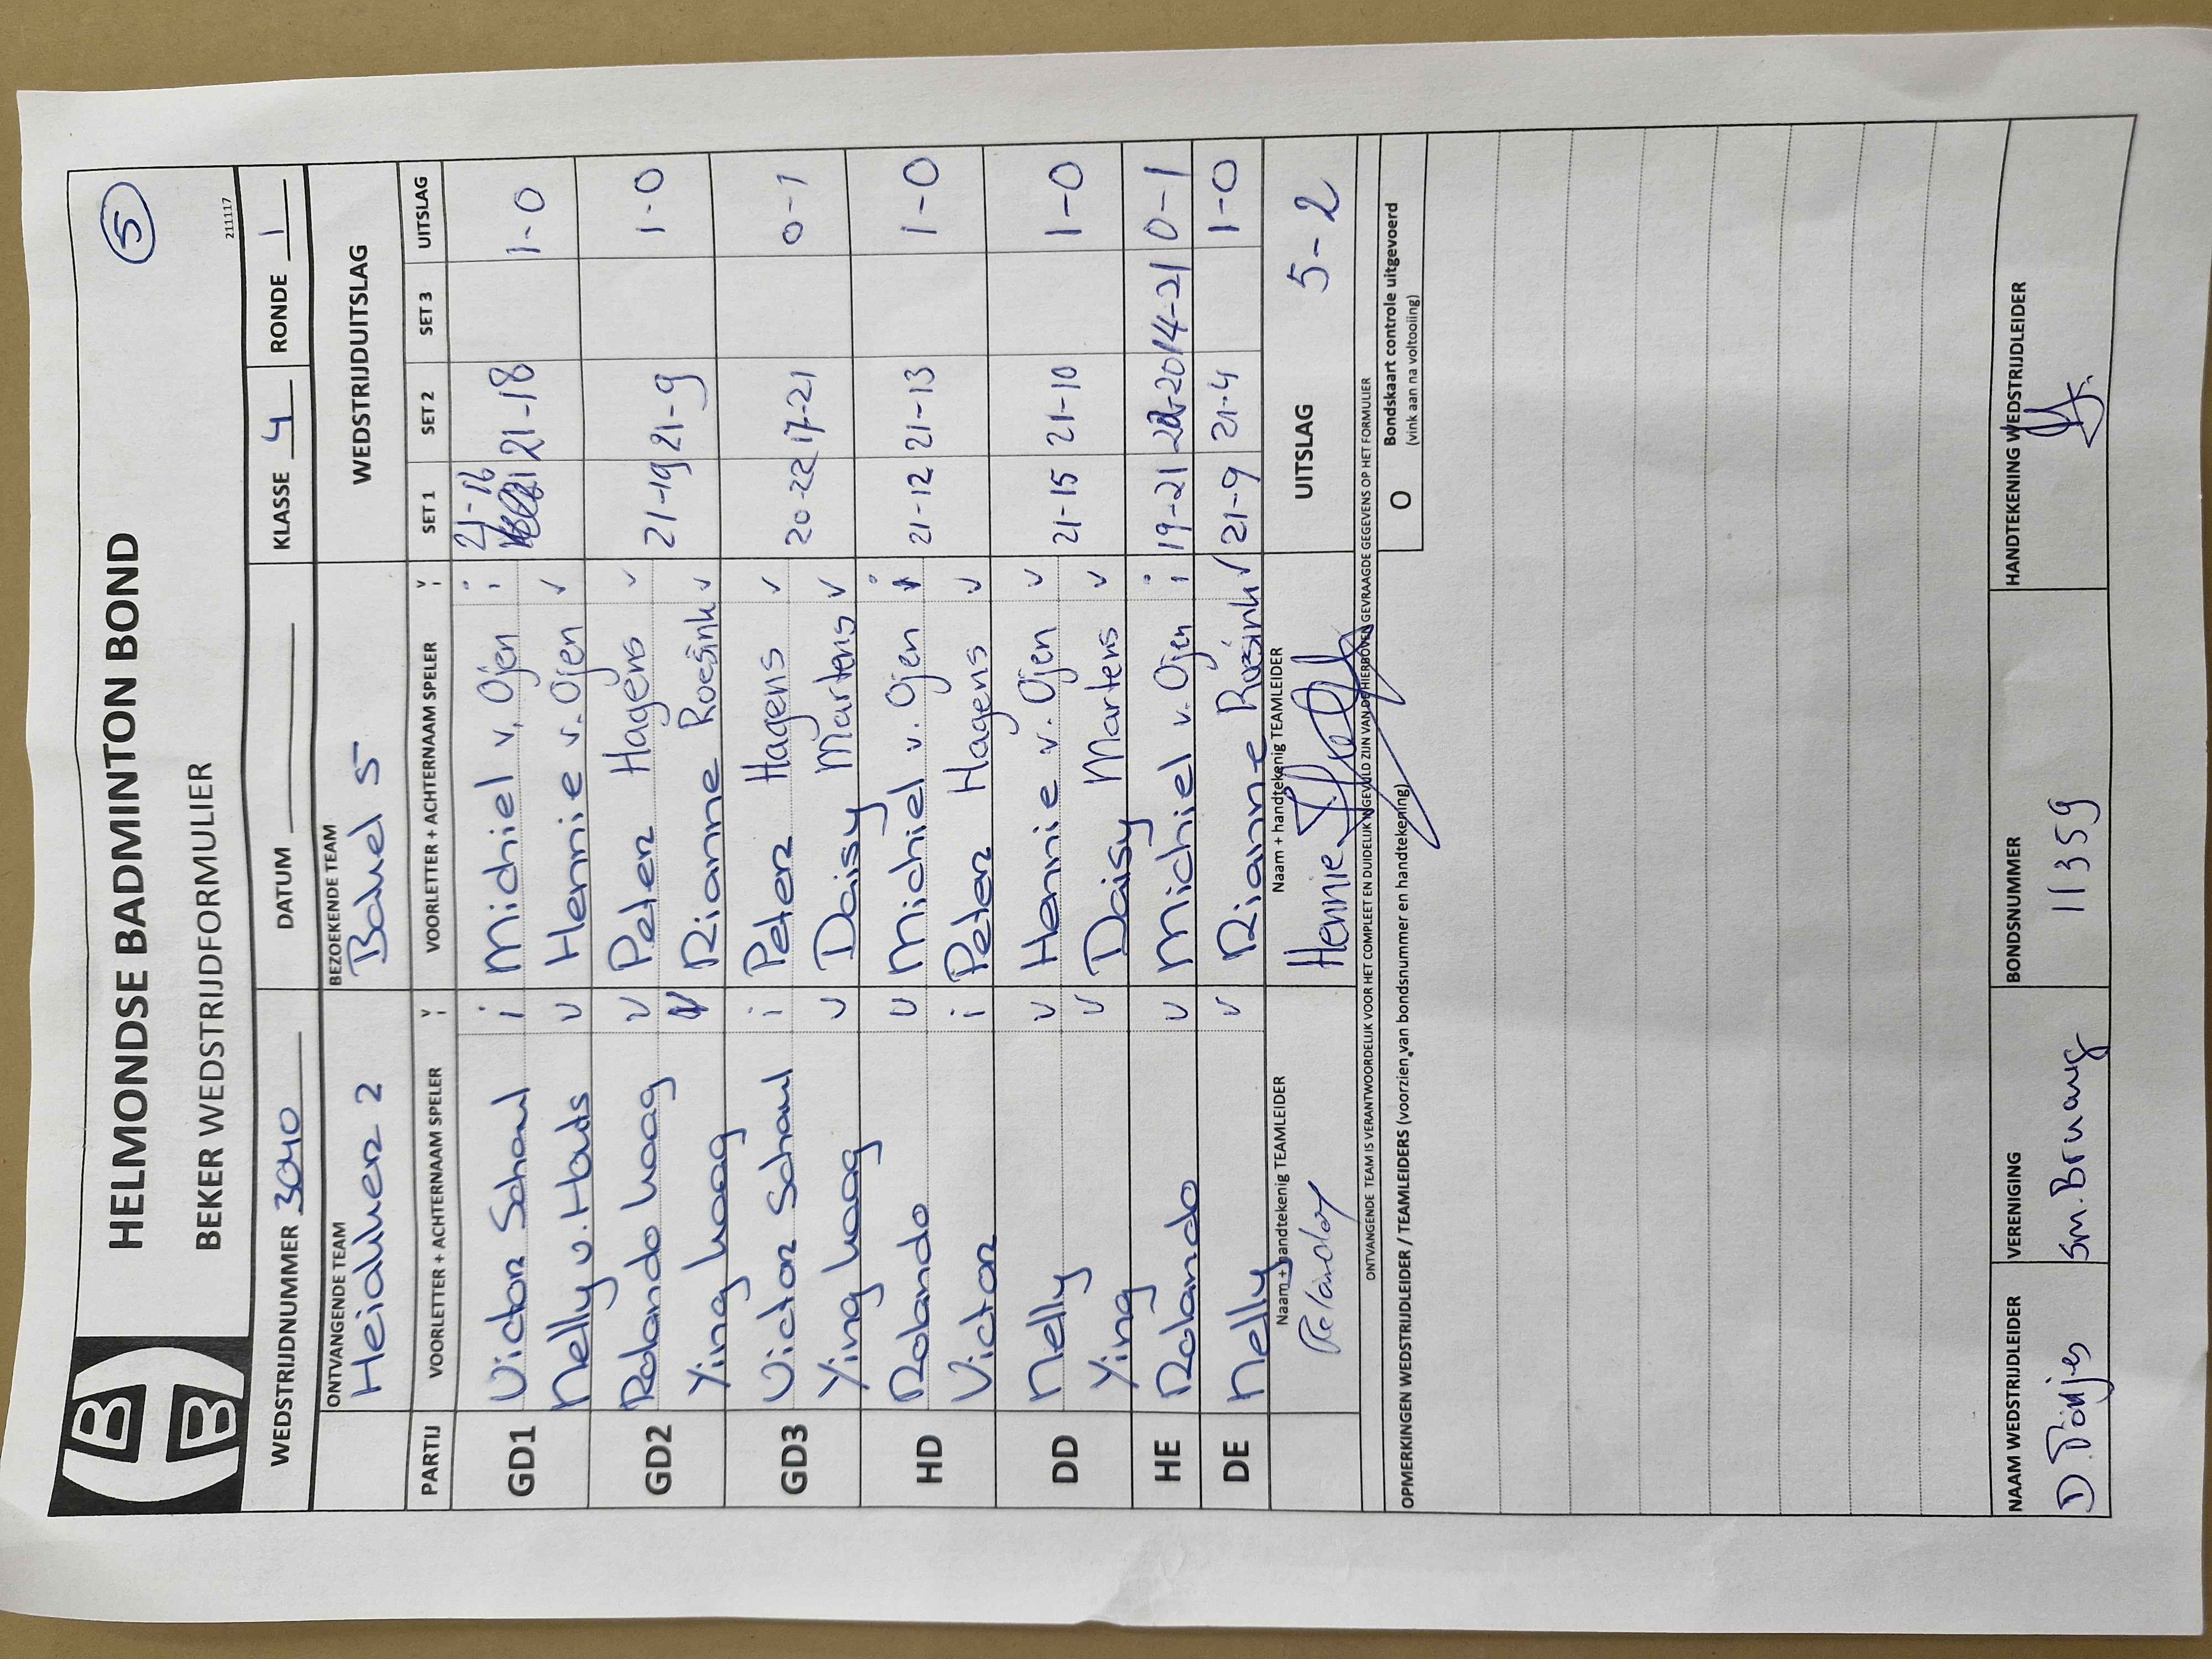 HELMONDSE BADMINTON BOND
5
BEKER WEDSTRIJDFORMULIER
211117
WEDSTRIJDNUMMER 3040 DATUM KLASSE 4 RONDE 1
ONTVANGENDE TEAM BEZOEKENDE TEAM WEDSTRIJDUITSLAG
Heiakker 2 Bakel 5
PARTIJ VOORLETTER + ACHTERNAAM SPELER V I VOORLETTER + ACHTERNAAM SPELER V I SET 1 SET 2 SET 3 UITSLAG
GD1 Victor Schawl i Michiel v. Ojen i 21-16 21-18 1-0
Nelly v. Houts v Hennie v. Ojen v
GD2 Rolando Haag v Peter Hagens v 21-19 21-9 1-0
Ying Haag v Rianne Roesink v
GD3 Victor Schawl i Peter Hagens v 20-22 17-21 0-1
Ying Haag v Daisy Martens v
HD Rolando v Michiel v. Ojen i 21-12 21-13 1-0
Victor i Peter Hagens v
DD Nelly v Hennie v. Ojen v 21-15 21-10 1-0
Ying v Daisy Martens v
HE Rolando v Michiel v. Ojen i 19-21 22-20 14-21 0-1
DE Nelly v Rianne Roesink v 21-9 21-4 1-0
Naam + handtekenig TEAMLEIDER Naam + handtekenig TEAMLEIDER UITSLAG 5-2
Hennie
ONTVANGENDE TEAM IS VERANTWOORDELIJK VOOR HET COMPLEET EN DUIDELIJK INGEVULD ZIJN VAN DE HIERBOVEN GEVRAAGDE GEGEVENS OP HET FORMULIER
OPMERKINGEN WEDSTRIJDLEIDER / TEAMLEIDERS (voorzien van bondsnummer en handtekening)
O Bondskaart controle uitgevoerd
(vink aan na voltooiing)
NAAM WEDSTRIJDLEIDER VERENIGING BONDSNUMMER HANDTEKENING WEDSTRIJDLEIDER
D. 11359